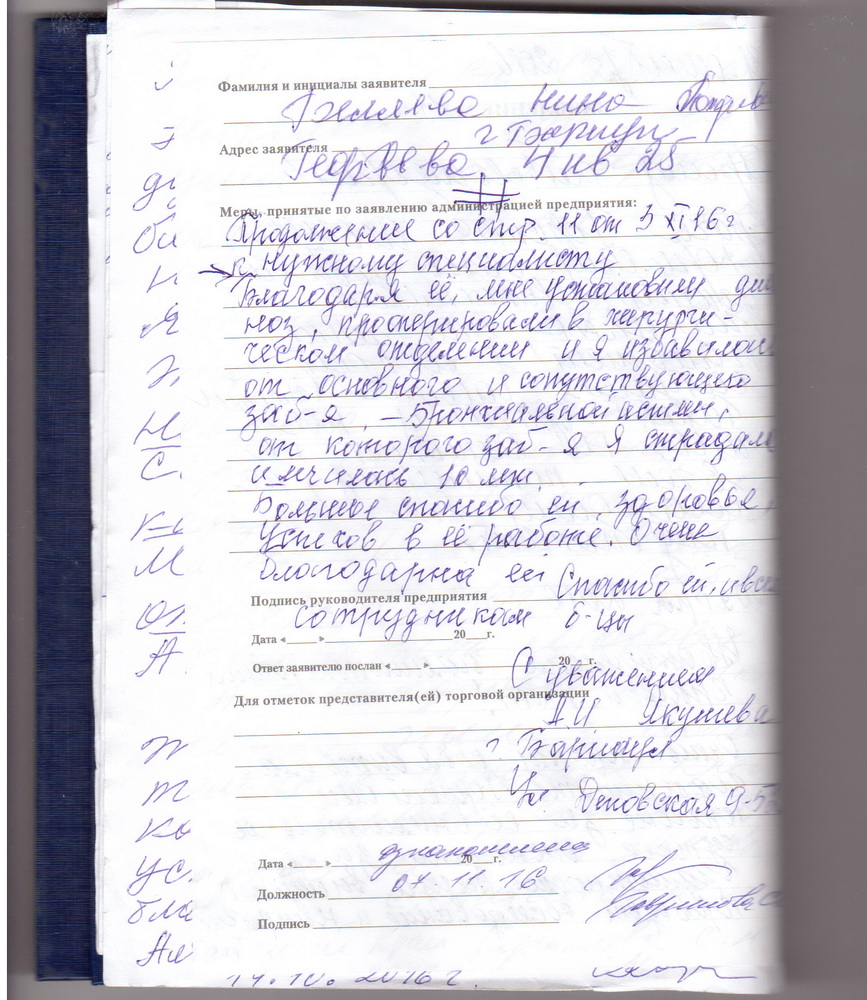 Фамилия и инициалы заявителя
Беляева Нина
г Барнаул
Адрес заявителя
Георгиева 4 кв 25
#
Меры, принятые по заявлению администрацией предприятия:
Продолжение со стр. 11 от 3 XI 16 г
к нужному специалисту
Благодаря ей, мне установили диа
ноз, прооперировали в хирурги-
ческом отделении и я избавилась
от основного и сопутствующего
заб-я – Бронхиальной астмы,
от которого заб-я я страдала
и мчилась 10 лет.
Большое спасибо ей, здоровья,
Успехов в её работе. Очень
благодарна ей Спасибо ей, и вс
Подпись руководителя предприятия
сотрудникам б-цы
Дата «____» 20__г.
Ответ заявителю послан «____» 20__г.
С уважением
Для отметок представителя(ей) торговой организации
А И Якушева
г. Барнаул
Ул Деповская 9-5
ознакомлена
Дата «____» 20__г.
Должность 07.11.16
Подпись
14.10.2016 г.